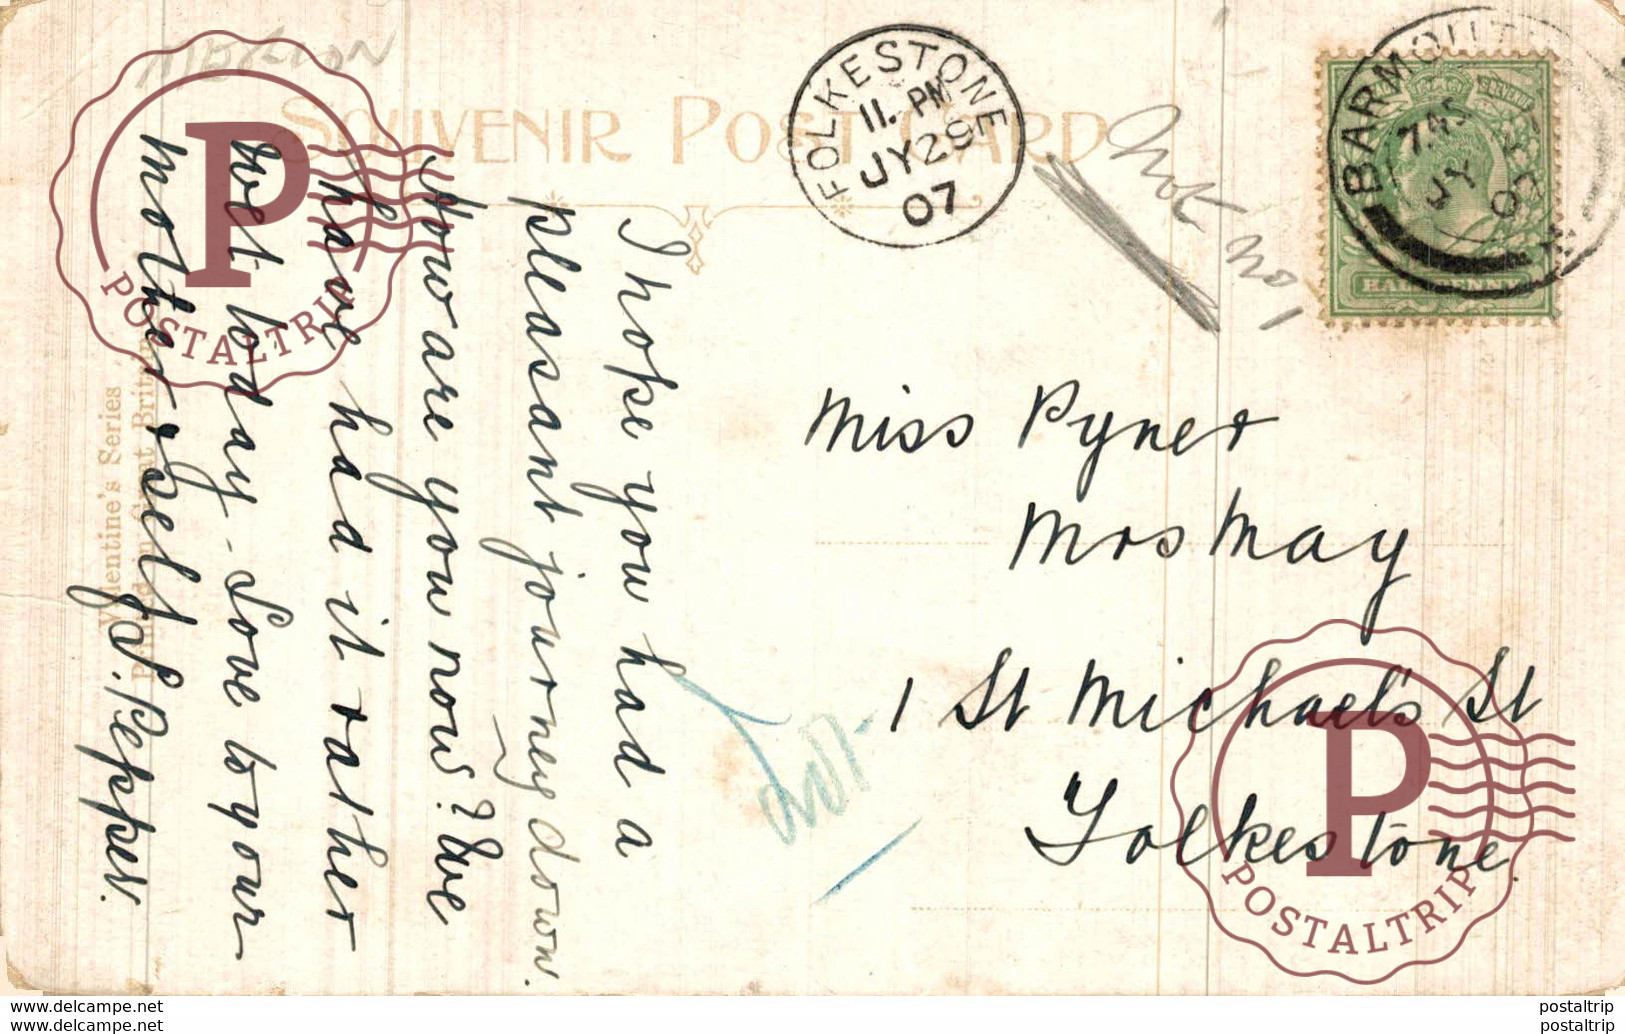 MERION
SOUVENIR POST CARD
FOLKESTONE
11. PM
JY 29
07
Not No 1
BARMOUTH
JY
HALFPENNY
I hope you had a
pleasant journey down.
How are you now? We
have had it rather
wet today - Love to your
mother & self S. Peppes.
Valentine's Series
Printed in Great Britain
Miss Pyner
Mrs May
1 St Michael's St
Folkestone.
P
POSTALTRIP
P
POSTALTRIP
www.delcampe.net
www.delcampe.net
postaltrip
postaltrip